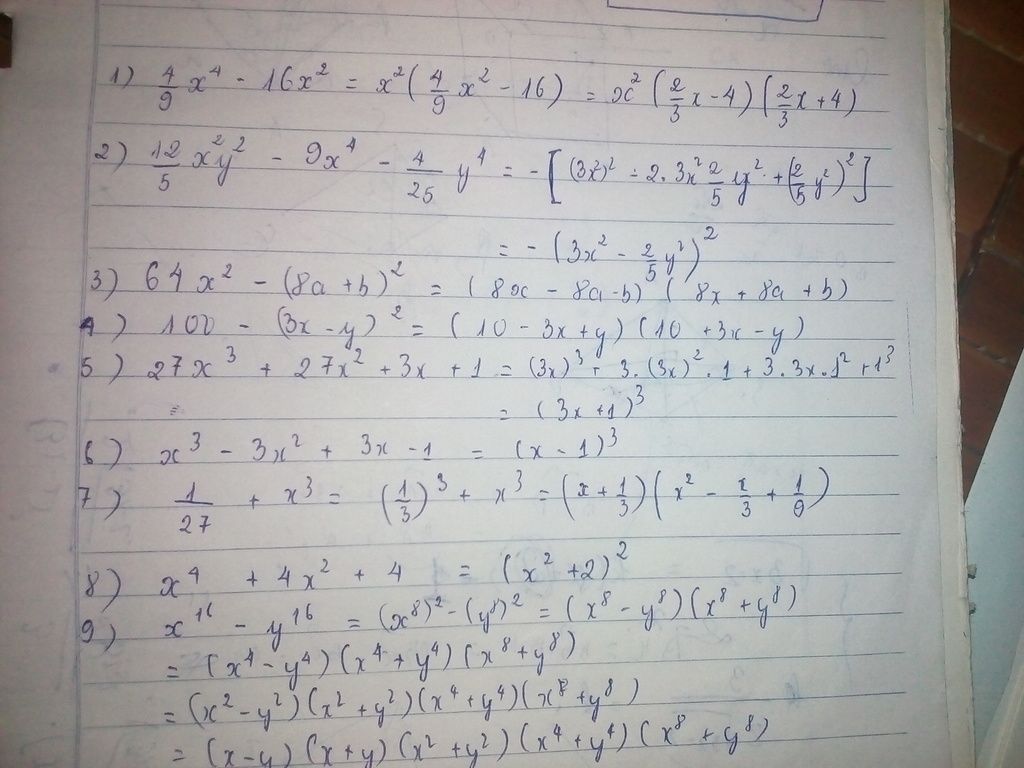 1) 4/9 x⁴ - 16x² = x² (4/9 x² - 16) = x² (2/3 x - 4) (2/3 x + 4)
2) 12/5 x²y² - 9x⁴ - 4/25 y⁴ = - [ (3x²)² - 2. 3x² 2/5 y² + (2/5 y²)² ]
= - (3x² - 2/5 y²)²
3) 64x² - (8a + b)² = (8x - 8a - b) (8x + 8a + b)
4) 100 - (3x - y)² = (10 - 3x + y) (10 + 3x - y)
5) 27x³ + 27x² + 3x + 1 = (3x)³ + 3.(3x)².1 + 3.3x.1² + 1³
= (3x + 1)³
6) x³ - 3x² + 3x - 1 = (x - 1)³
7) 1/27 + x³ = (1/3)³ + x³ = (x + 1/3) (x² - x/3 + 1/9)
8) x⁴ + 4x² + 4 = (x² + 2)²
9) x¹⁶ - y¹⁶ = (x⁸)² - (y⁸)² = (x⁸ - y⁸) (x⁸ + y⁸)
= (x⁴ - y⁴) (x⁴ + y⁴) (x⁸ + y⁸)
= (x² - y²) (x² + y²) (x⁴ + y⁴) (x⁸ + y⁸)
= (x - y) (x + y) (x² + y²) (x⁴ + y⁴) (x⁸ + y⁸)